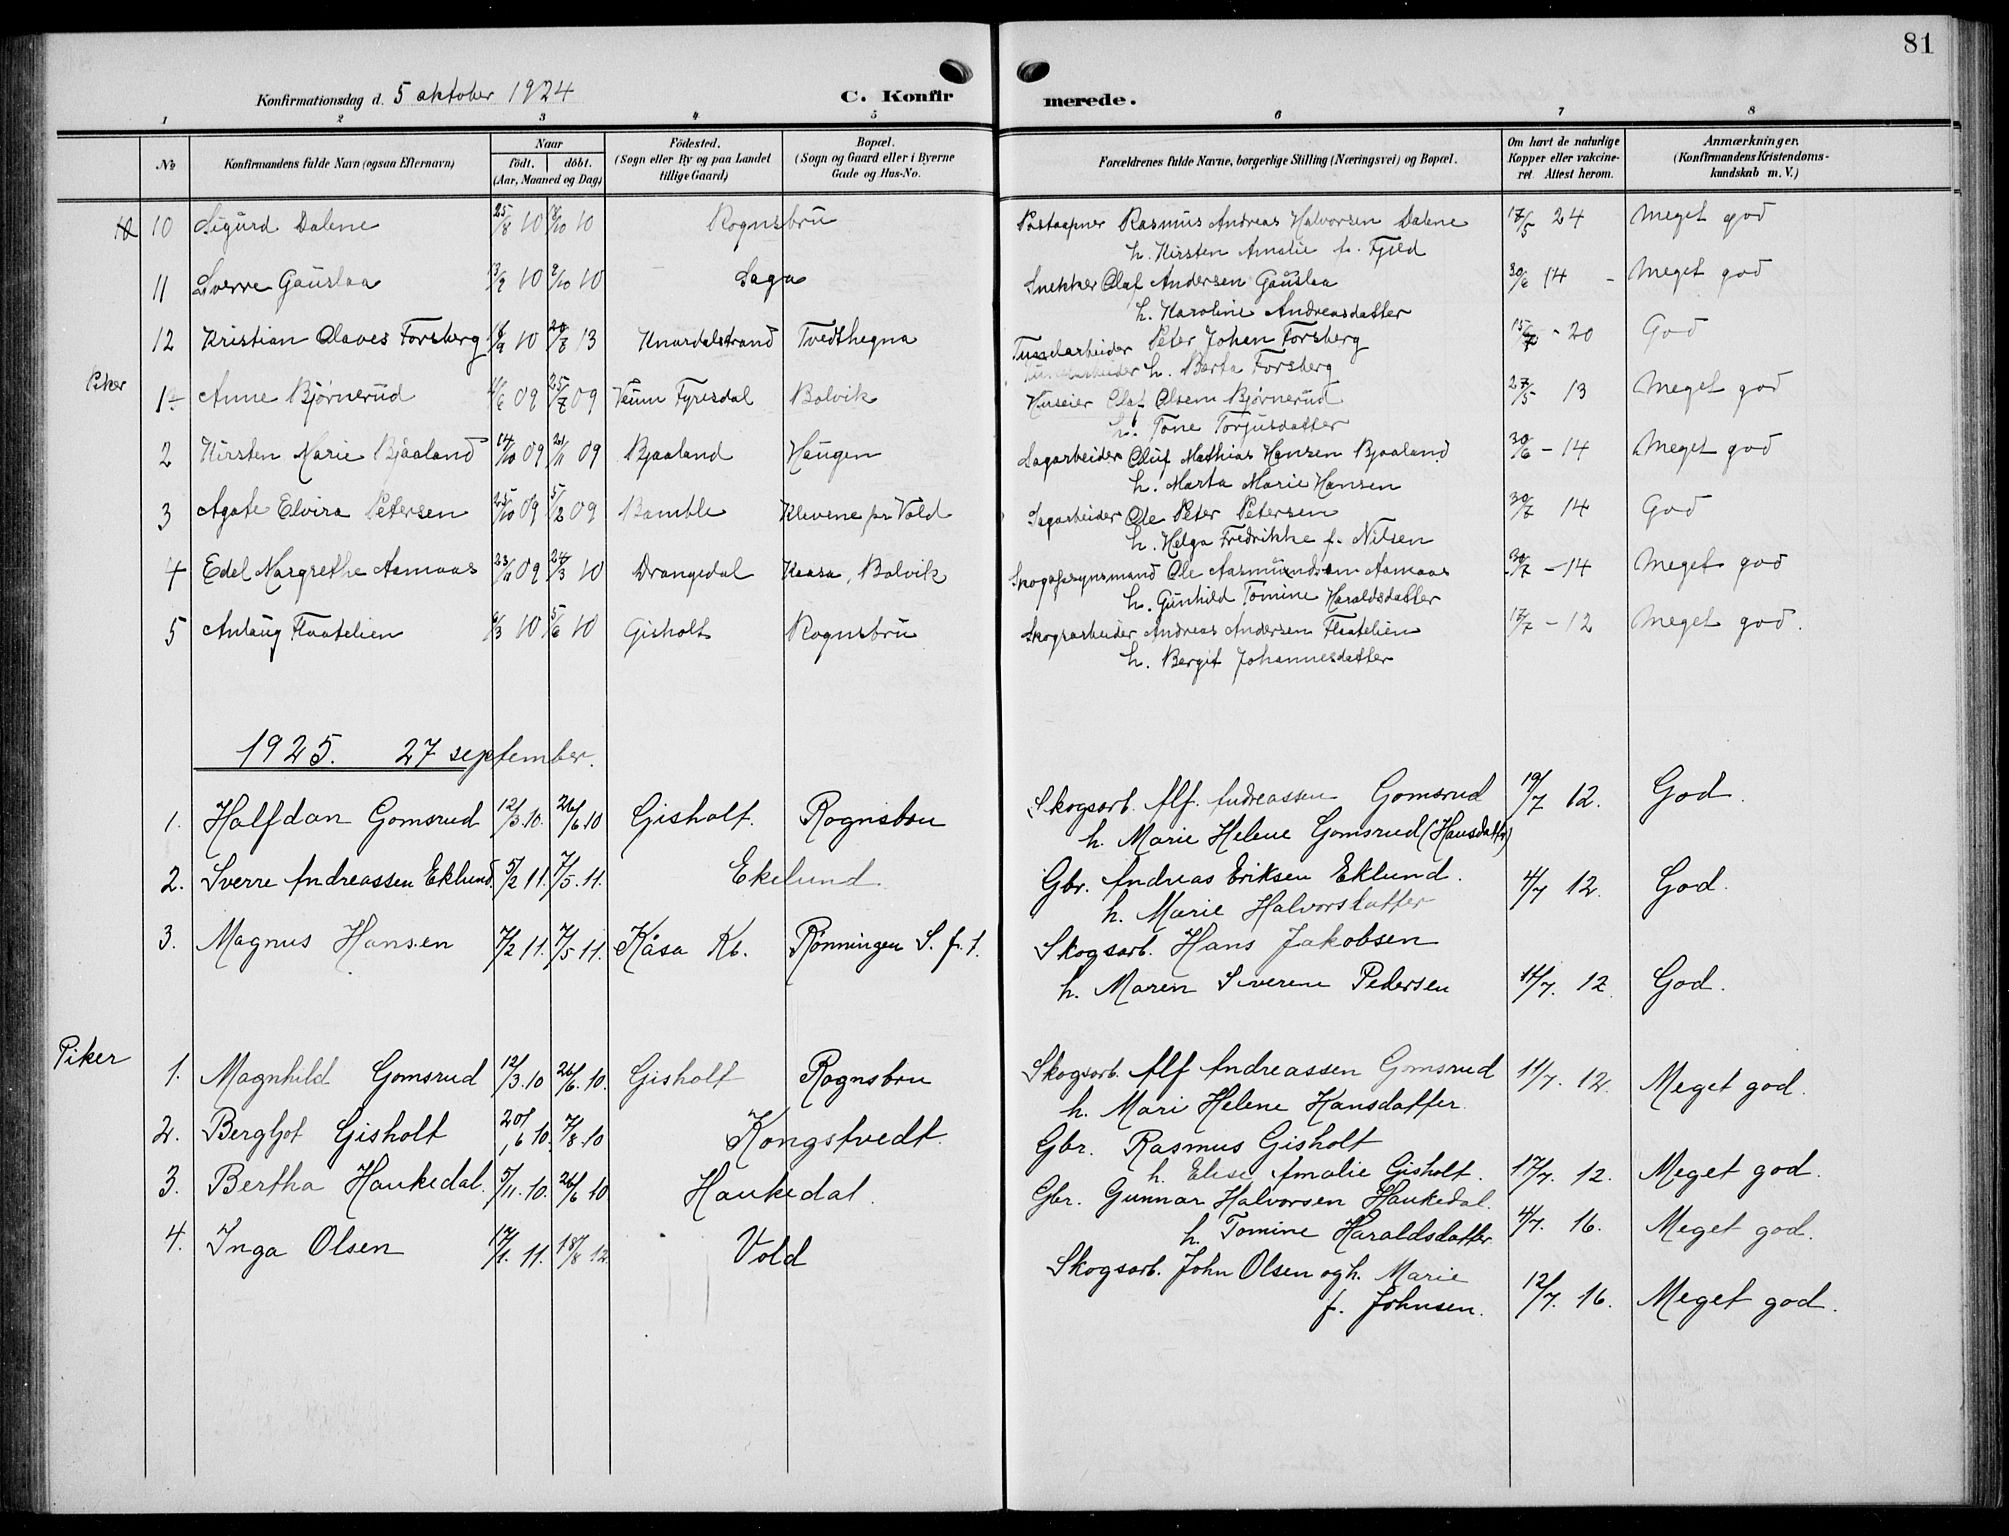 81
Konfirmationsdag d. 5 oktober 1924
C. Konfirmerede.
1 2 3 4 5 6 7 8
No
Konfirmandens fulde Navn (ogsaa Efternavn)
Naar
født. døbt.
(Aar, Maaned og Dag)
Fødested.
(Sogn eller By og paa Landet
tillige Gaard)
Bopæl.
(Sogn og Gaard eller i Byerne
Gade og Hus-No.
Forældrenes fulde Navne, borgerlige Stilling (Næringsvei) og Bopæl.
Om havt de naturlige
Kopper eller vakcine-
ret. Attest herom.
Anmærkninger.
(Konfirmandens Kristendoms-
kundskab m. V.)
10 Sigurd Dalene 25/8 10 /10 10 Rognsbru Postaapner Rasmus Andreas Halvorsen Dalene 17/5 24 Meget god
h. Kirsten Amalie f. Fjeld
11 Sverre Gauslaa 3/9 10 9/10 10 Saga Snekker Olaf Andersen Gauslaa 30/6 14 - Meget god
h. Karoline Andreasdatter
12 Kristian Olaves Forsberg /9 10 /8 13 Knardalstrand Tvedthegna Peter Johan Forsberg 15/7 - 20 God
h. Berta Forsberg
Piker
1 Anne Bjørnerud /6 09 25/7 09 Veum Fyresdal Bolvik Huseier Olaf Olsen Bjørnerud 27/5 13 Meget god
h. Tone Torjusdatter
2 Kirsten Marie Bjaaland 14/10 09 21/11 09 Bjaaland Haugen Sagarbeider Oluf Mathias Hansen Bjaaland 30/6 - 14 Meget god
h. Marta Marie Hansen
3 Agate Elvira Petersen 25/10 09 5/12 09 Bamble Klevene pr Vold Sagarbeider Ole Peter Petersen 30/7 14 God
h. Helga Fredrikke f. Nilsen
4 Edel Margrethe Aamaas 23/11 09 24/3 10 Drangedal Kaasa, Bolvik Skogopsynsmand Ole Aasmundsen Aamaas 30/7 - 14 Meget god
h. Gunhild Tomine Haraldsdatter
5 Anlaug Flaatelien 6/3 10 5/6 10 Gisholt Rognsbru Skogsarbeider Andreas Andersen Flaatelien 17/7 - 12 Meget god.
h. Bergit Johannesdatter
1925. 27 september.
1. Halfdan Gomsrud 12/3.10. 26/6.10 Gisholt. Rognsbru Skogsarb. Alf. Andreassen Gomsrud 19/7 12. God.
h. Marie Helene Gomsrud (Hansdatter)
2. Sverre Andreassen Eklund. 5/2 11. 7/5.11. Ekelund. Gbr. Andreas Eriksen Eklund. 4/7 12. God.
h. Marie Halvorsdatter
3. Magnus Hansen 7/2 11. 7/5 11. Kåsa Kb. Rønningen S. f. f. Skogsarb. Hans Jakobsen
h. Maren Severine Pedersen 11/7. 12. God.
Piker
1. Magnhild Gomsrud 12/3.10 26/6.10. Gisholt Rognsbru Skogsarb. Alf Andreassen Gomsrud 11/7. 12. Meget god.
h. Mari Helene Hansdatter.
2. Bergljot Gisholt 20/6 10. 7/8.10 Kongstvedt. Gbr. Rasmus Gisholt
h. Elise Amalie Gisholt. 17/7. 12. Meget god.
3. Bertha Haukedal. 5/11.10. 26/6 10 Haukedal. Gbr. Gunnar Halvorsen Haukedal.
h. Tomine Haraldsdatter. 4/7. 16. Meget god.
4. Inga Olsen 17/1. 11. 18/8 12 Vold Skogsarb. John Olsen og h. Marie
f. Johnsen. 12/7. 16. Meget god.